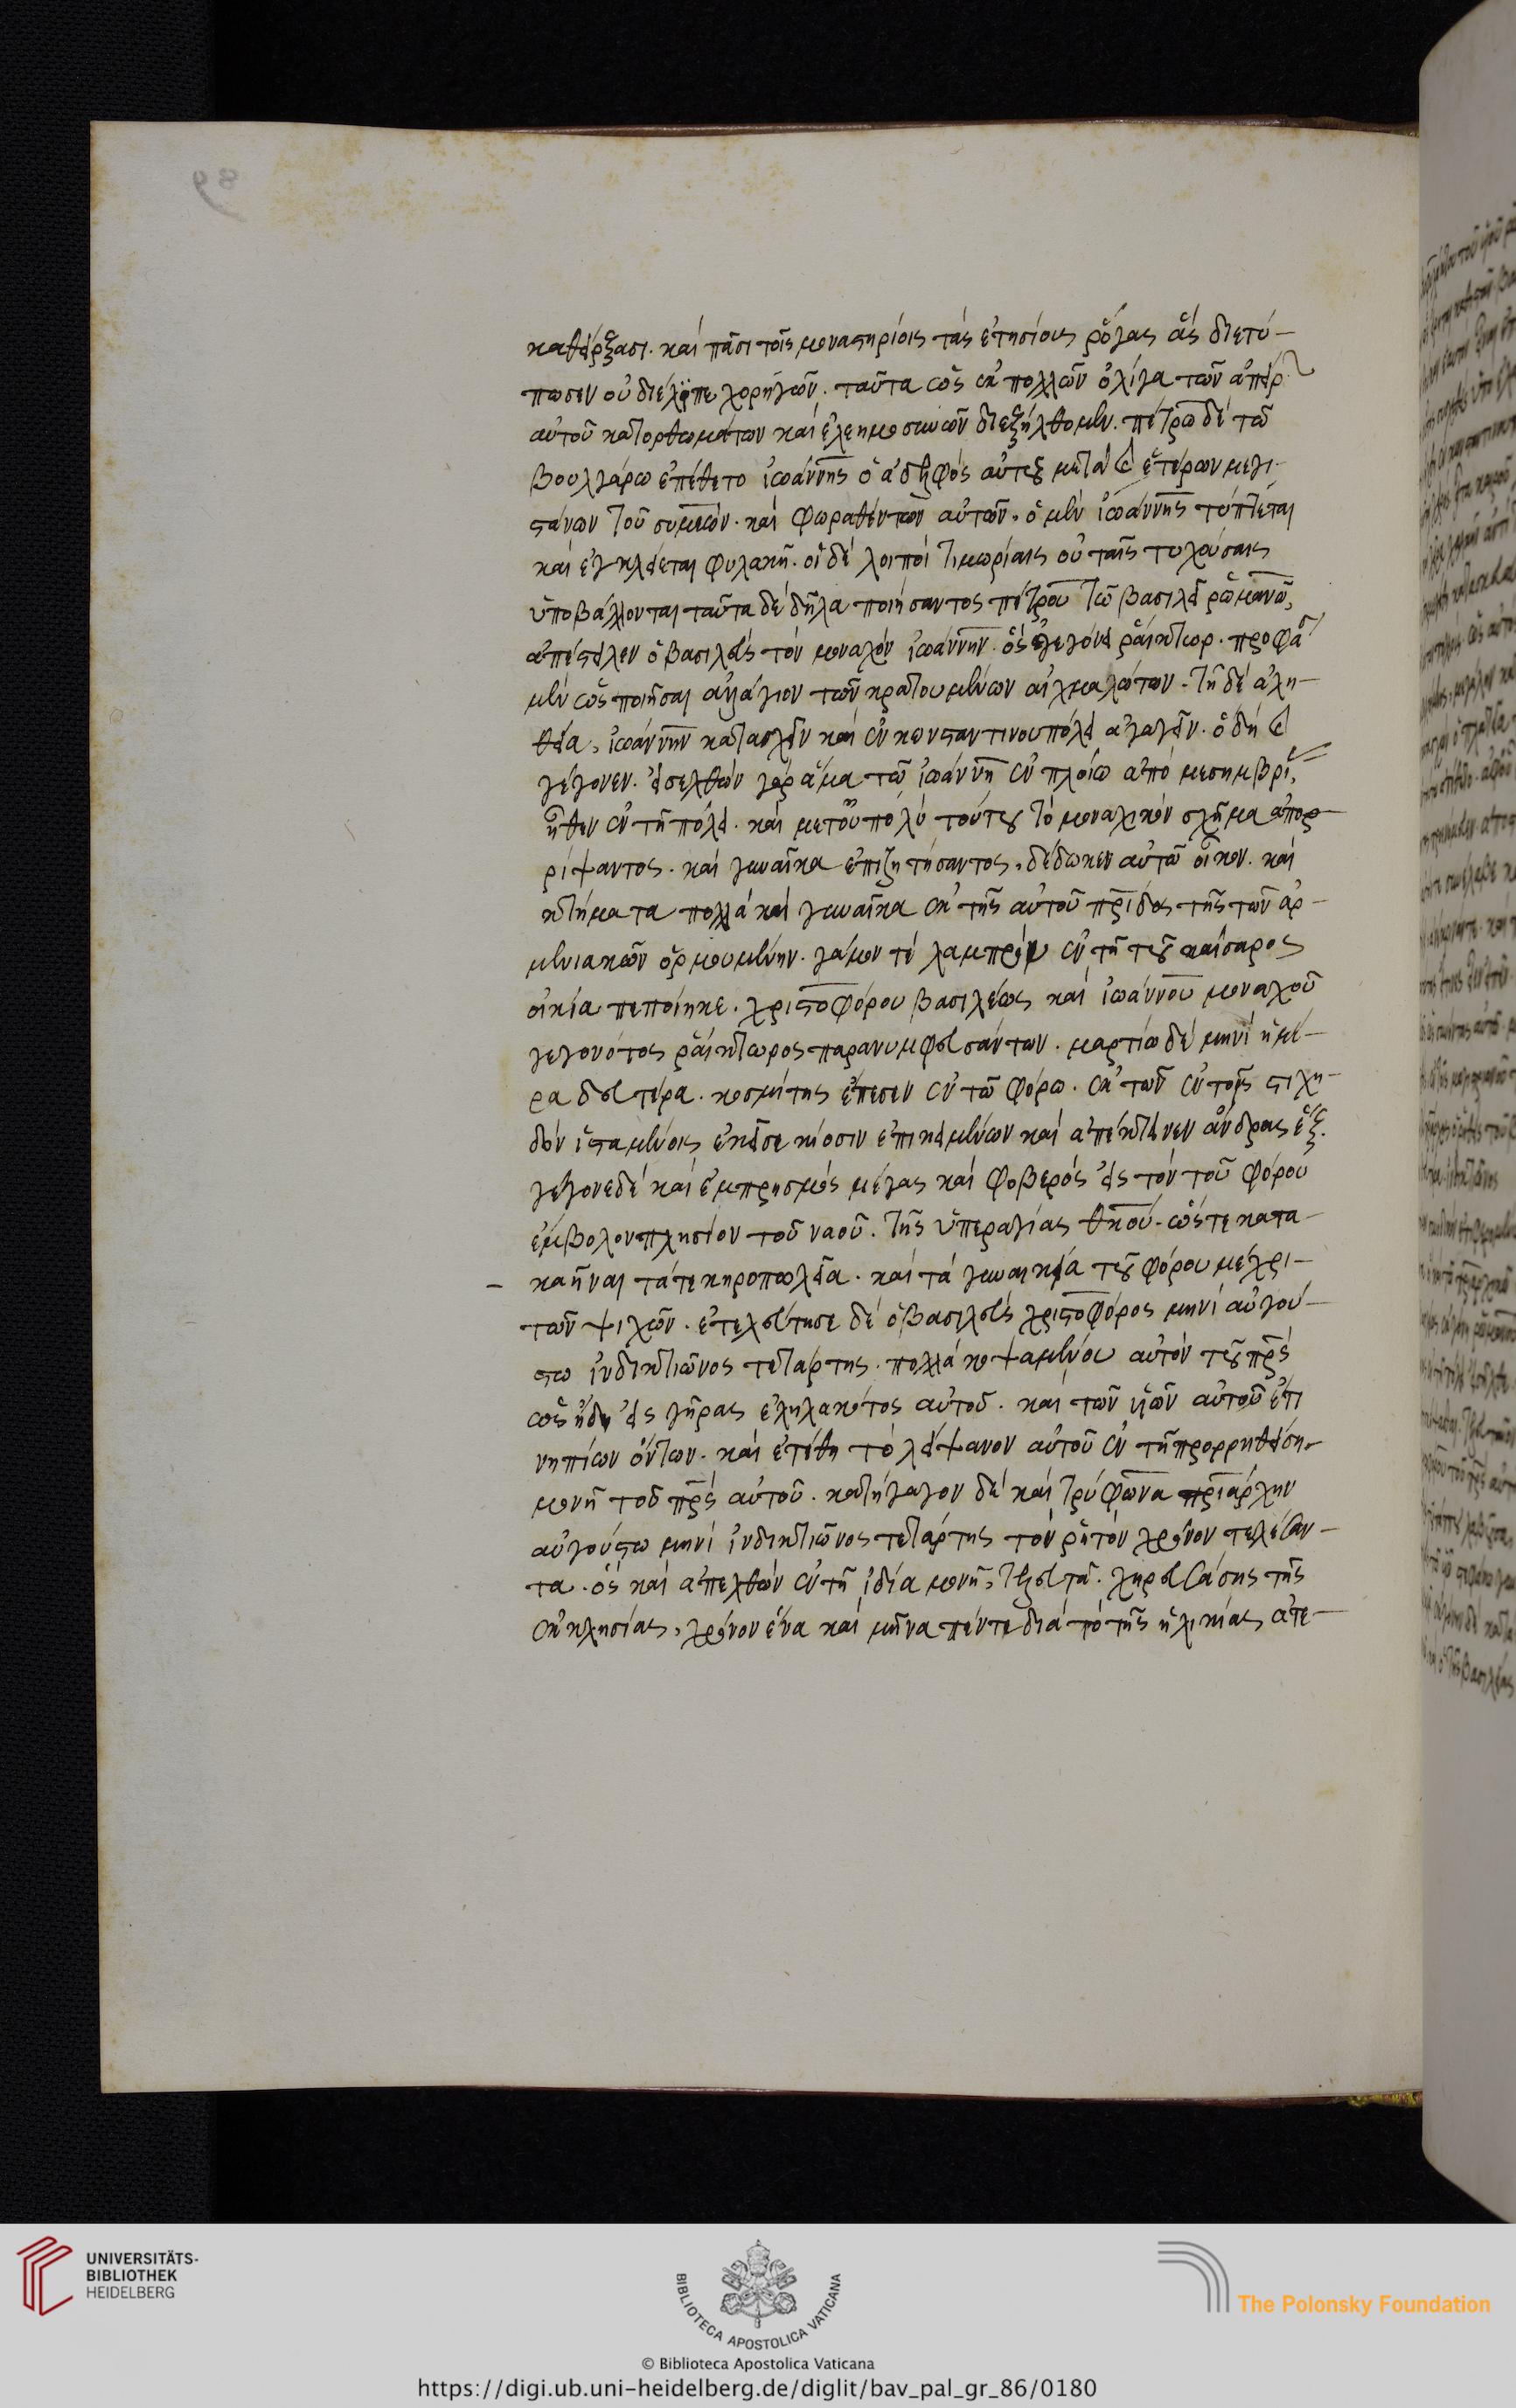 καθείρξασι. καὶ πᾶσι τοῖς μοναστηρίοις τὰς ἐτησίους ῥόγας ἃς διετύ-
πωσεν οὐ διέλιπε χορηγῶν. ταῦτα ὡς ἐκ πολλῶν ὀλίγα τῶν ἅπερ
αὐτοῦ κατορθωμάτων καὶ ἐλεημοσυνῶν διεξήλθομεν. πέτρω δὲ τῶ
βουλγάρω ἐπέθετο ἰωάννης ὁ ἀδελφὸς αὐτοῦ μετὰ καὶ ἑτέρων μεγι-
στάνων τοῦ συμεών. καὶ φωραθέντων αὐτῶν, ὁ μὲν ἰωάννης τύπτεται
καὶ ἐγκλείεται φυλακῆ. οἱ δὲ λοιποὶ τιμωρίαις οὐ ταῖς τυχούσαις
ὑποβάλλονται ταῦτα δὲ δῆλα ποιήσαντος πέτρου τῶ βασιλεῖ ῥωμανῶ,
ἀπέστειλεν ὁ βασιλεὺς τὸν μοναχὸν ἰωάννην. ὃς ἐγεγόνει ῥαίκτωρ. προφά
μὲν ὡς ποιῆσαι ἀλλάγιον τῶν κρατουμένων αἰχμαλώτων. τῆ δὲ ἀλη-
θεία, ἰωάννην κατασχεῖν καὶ ἐν κωνσταντινουπόλει ἀγαγεῖν. ὃ δὴ καὶ
γέγονεν. εἰσελθὼν γὰρ ἅμα τῶ ἰωάννη ἐν πλοίω ἀπὸ μεσημβρί,
ἦλθεν ἐν τῆ πόλει. καὶ μετ' οὐ πολὺ τούτου τὸ μοναχικὸν σχῆμα ἀπορ-
ρίψαντος. καὶ γυναῖκα ἐπιζητήσαντος, δέδωκεν αὐτῶ οἶκον. καὶ
κτήματα πολλὰ καὶ γυναῖκα ἐκ τῆς αὐτοῦ πρίδος τῆς τῶν ἀρ-
μενιακῶν ὁρμουμένην. γάμον τὲ λαμπρὸν ἐν τῆ τοῦ καίσαρος
οἰκία πεποίηκε. χριστοφόρου βασιλέως καὶ ἰωάννου μοναχοῦ
γεγονότος ῥαίκτωρος παρανυμφευσάντων. μαρτίω δὲ μηνὶ ἡμέ-
ρα δευτέρα. κοσμίτης ἔπεσεν ἐν τῶ φόρω. ἐκ τῶν ἐν τοῖς στιχη-
δὸν ἱσταμένοις ἐκεῖσε κίοσιν ἐπικειμένων καὶ ἀπέκτεινεν ἄνδρας ἕξ.
γέγονε δὲ καὶ ἐμπρησμὸς μέγας καὶ φοβερὸς εἰς τὸν τοῦ φόρου
ἔμβολον πλησίον τοῦ ναοῦ. τῆς ὑπεραγίας θκου. ὥστε κατα-
καῆναι τά τε κηροπωλεῖα. καὶ τὰ γυναικεῖα τοῦ φόρου μέχρι-
τῶν ψιχῶν. ἐτελεύτησε δὲ ὁ βασιλεὺς χριστοφόρος μηνὶ αὐγού-
στω ἰνδικτιῶνος τετάρτης. πολλὰ κοψαμένου αὐτὸν τοῦ πρς
ὡς ἤδη εἰς γῆρας ἐληλακότος αὐτοῦ. καὶ τῶν υἱῶν αὐτοῦ ἔτι
νηπίων ὄντων. καὶ ἐτέθη τὸ λείψανον αὐτοῦ ἐν τῆ προρρηθείση
μονῆ τοῦ πρς αὐτοῦ. κατήγαγον δὲ καὶ τρύφωνα πριάρχην
αὐγούστω μηνὶ ἰνδικτιῶνος τετάρτης τὸν ῥητὸν χρόνον τελέσαν-
τα. ὃς καὶ ἀπελθὼν ἐν τῆ ἰδία μονῆ, τελευτᾶ. χηρευσάσης τῆς
ἐκκλησίας, χρόνον ἕνα καὶ μῆνα πέντε διὰ τὸ τῆς ἡλικίας ἀτε-
89
UNIVERSITÄTS-
BIBLIOTHEK
HEIDELBERG
BIBLIOTECA APOSTOLICA VATICANA
The Polonsky Foundation
© Biblioteca Apostolica Vaticana
https://digi.ub.uni-heidelberg.de/diglit/bav_pal_gr_86/0180